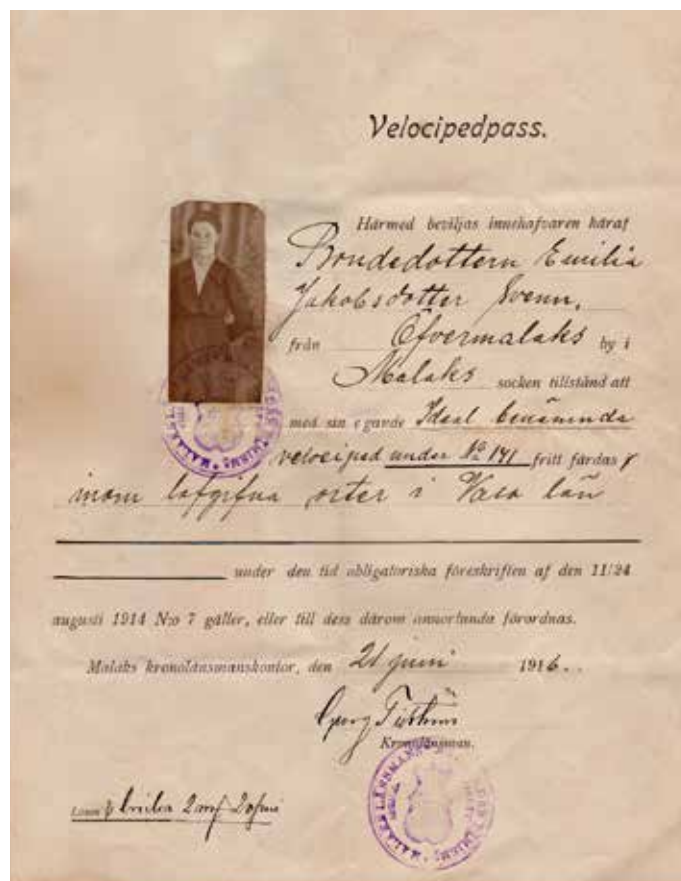 Velocipedpass.
Härmed beviljas innehafvaren häraf
Bondedottern Emilia
Jakobsdotter Svenn,
från Öfvermalaks by i
Malaks socken tillstånd att
med sin egande Ideal benämnda
velociped under № 141 fritt färdas
inom lofgifna orter i Vasa län
under den tid obligatoriska föreskriften af den 11/24
augusti 1914 N:o 7 gäller, eller till dess därom annorlunda förordnas.
Malaks kronolänsmanskontor, den 21 juni 1916.
Georg
Kronolänsman.
Lösen